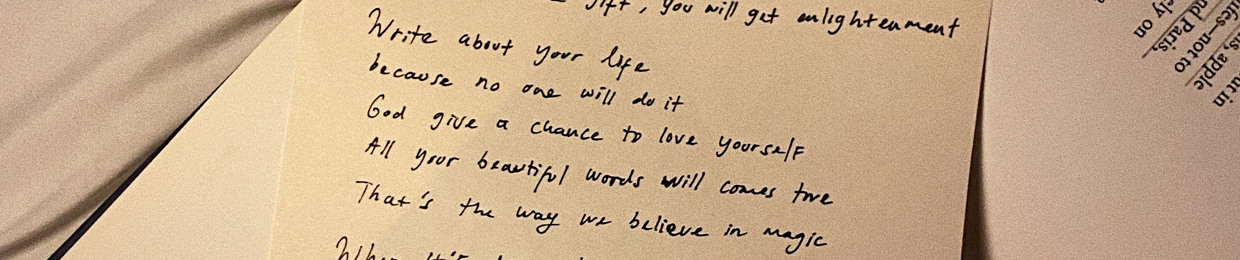 gift, you will get enlightenment
Write about your life
because no one will do it
God give a chance to love yourself
All your beautiful words will comes true
That's the way we believe in magic
When it's
ut in
s, apple
les—not to
nd Paris,
ely on